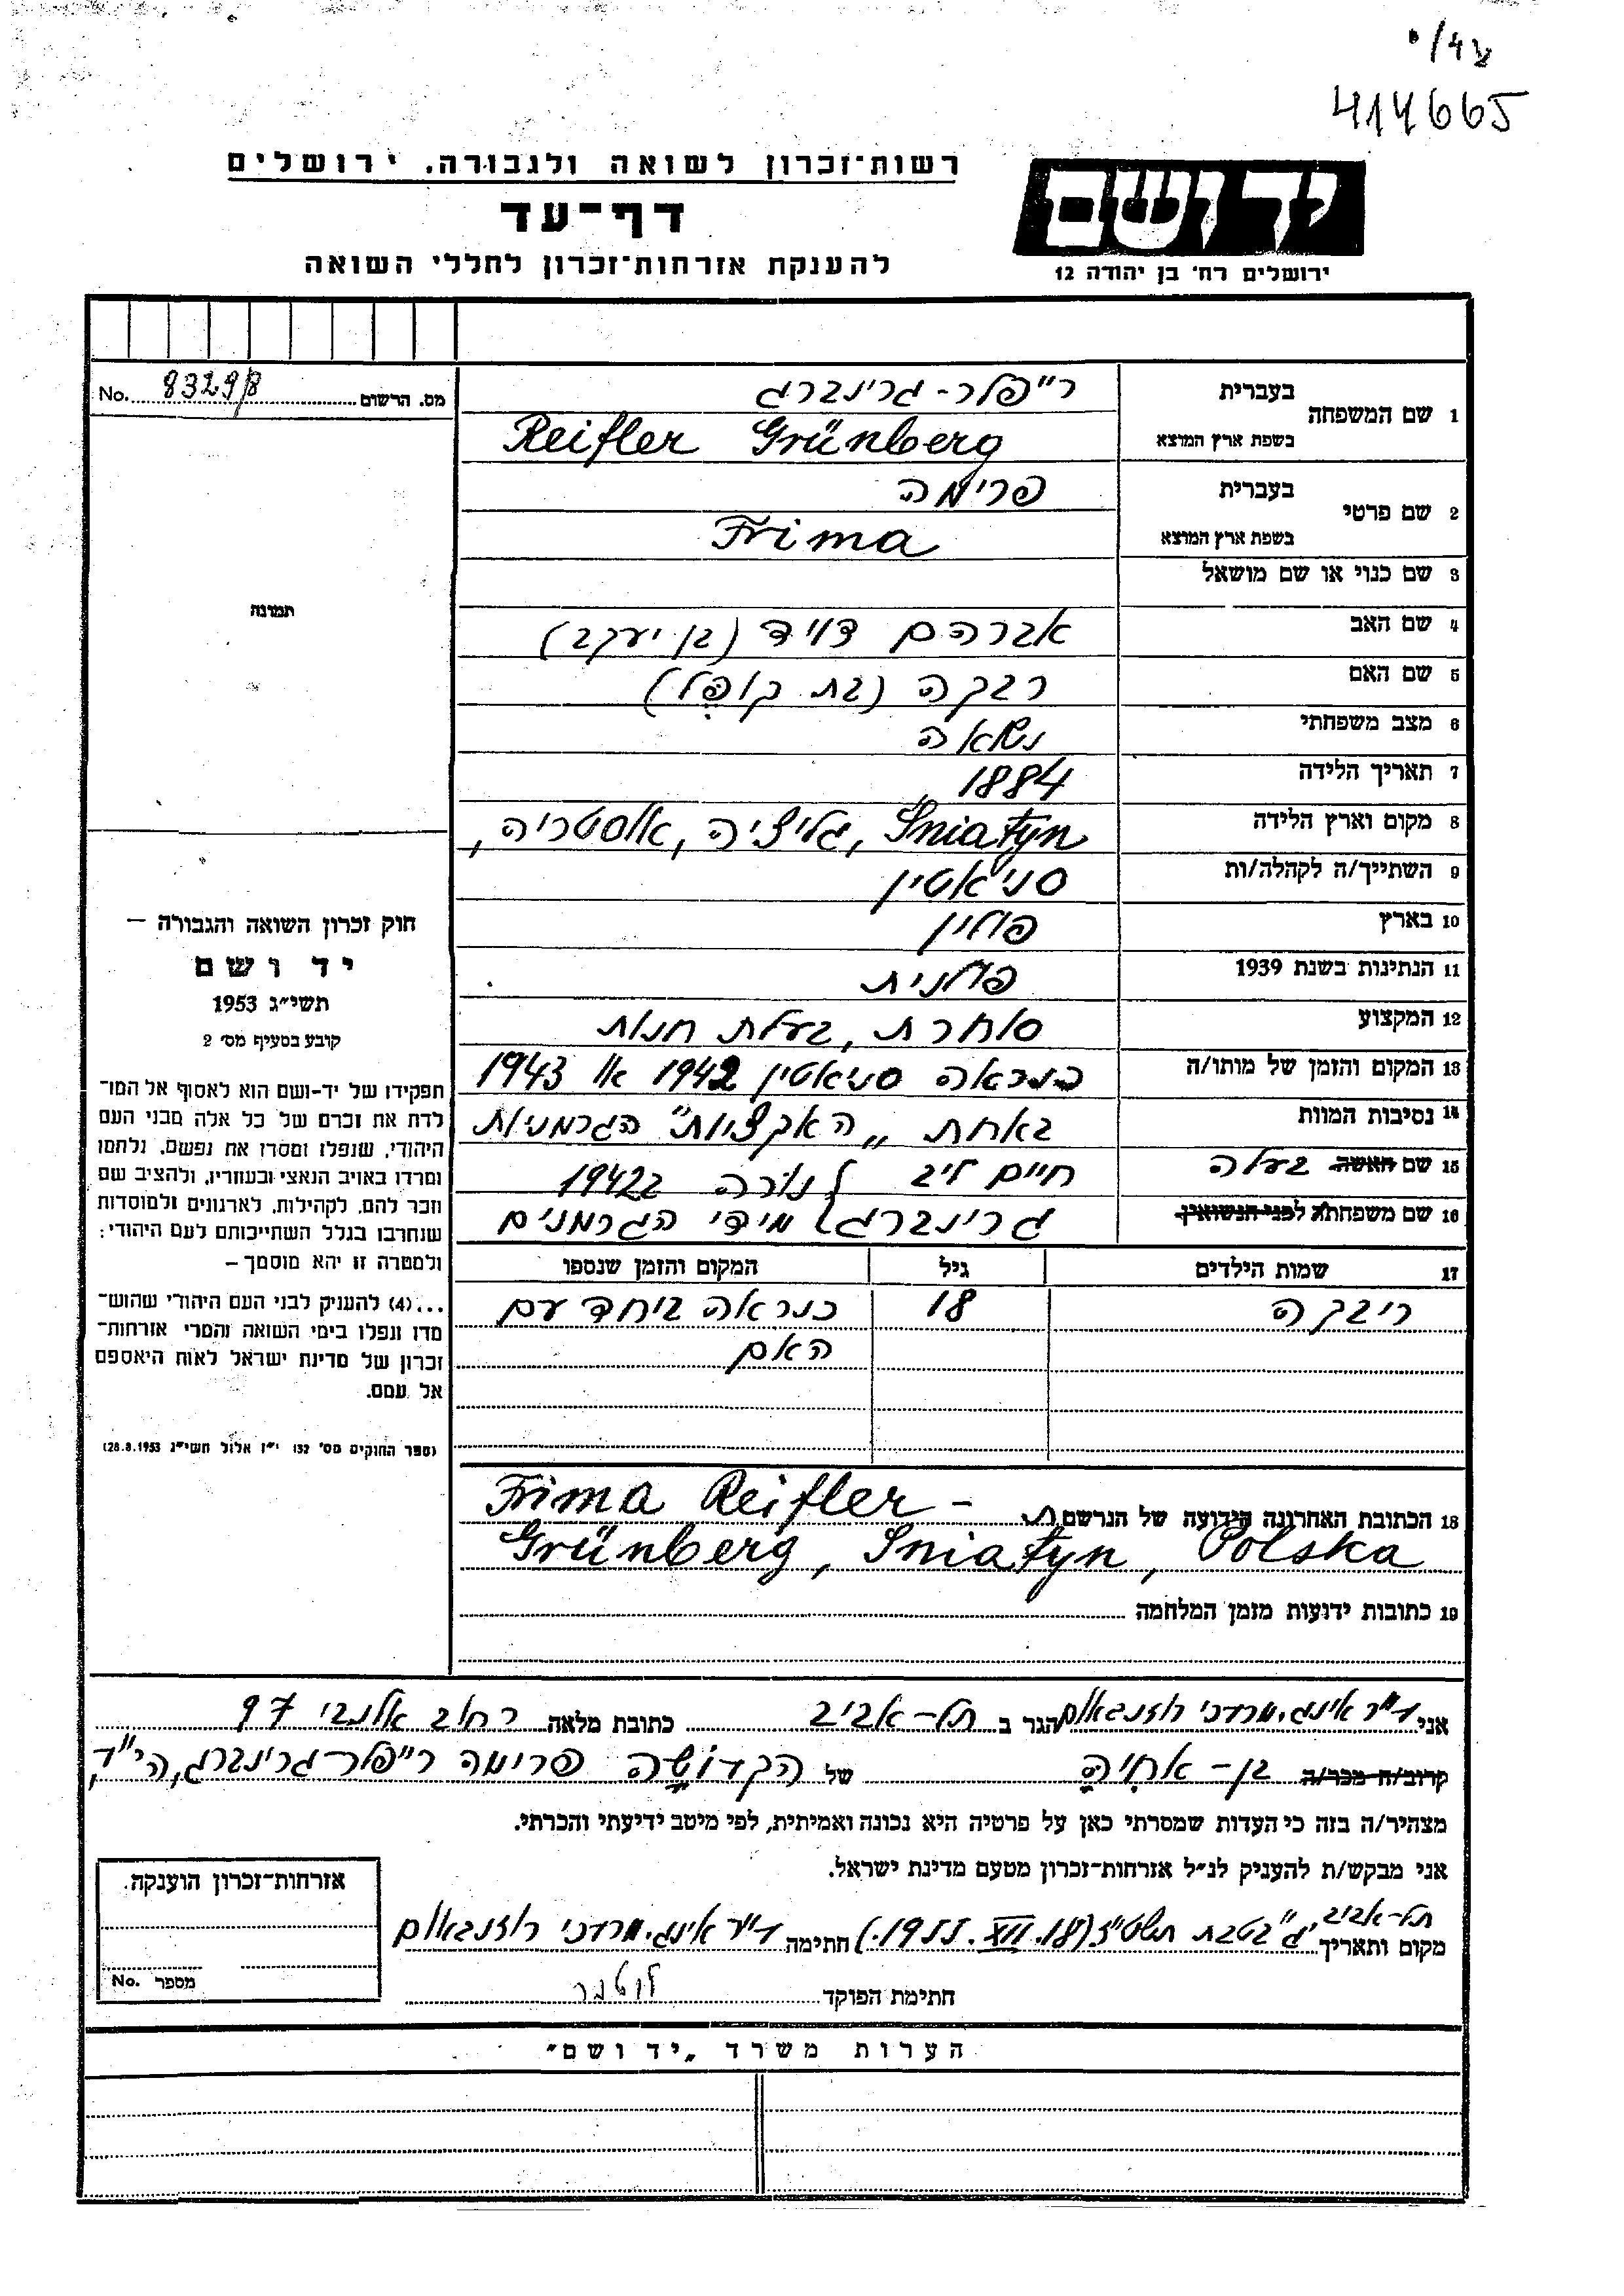 414665
ידושם
ירושלים רח' בן יהודה 12
רשות־זכרון לשואה ולגבורה, ירושלים
דף־עד
להענקת אזרחות־זכרון לחללי השואה
מס. הרשום 8329/8 No.
תמונה
חוק זכרון השואה והגבורה —
יד ושם
תשי״ג 1953
קובע בסעיף מס׳ 2
תפקידו של יד-ושם הוא לאסוף אל המו־
לדת את זכרם של כל אלה מבני העם
היהודי, שנפלו ומסרו את נפשם, נלחמו
ומרדו באויב הנאצי ובעוזריו, ולהציב שם
וזכר להם, לקהילות, לארגונים ולמוסדות
שנחרבו בגלל השתייכותם לעם היהודי;
ולמטרה זו יהא מוסמך —
...(4) להעניק לבני העם היהודי שהוש־
מדו ונפלו בימי השואה והמרי אזרחות־
זכרון של מדינת ישראל לאות היאספם
אל עמם.
(ספר החוקים מס׳ 132 י״ז אלול תשי״ג 28.8.1953)
1 שם המשפחה בעברית רייפלר-גרינברג
בשפת ארץ המוצא Reifler Grünberg
2 שם פרטי בעברית פרימה
בשפת ארץ המוצא Frima
3 שם כנוי או שם מושאל
4 שם האב אברהם דויד (בן יעקב)
5 שם האם רבקה (בת קופל)
6 מצב משפחתי נשואה
7 תאריך הלידה 1884
8 מקום וארץ הלידה Śniatyn, גליציה, אוסטריה,
9 השתייך/ה לקהלה/ות סניאטין
10 בארץ פולין
11 הנתינות בשנת 1939 פולנית
12 המקצוע סוחרת, בעלת חנות
13 המקום והזמן של מותו/ה כנראה סניאטין 1942 או 1943
14 נסיבות המוות באחת „האקציות" הגרמניות
15 שם האשה בעלה חיים ליב נורה ב1942
16 שם משפחתה לפני הנשואין גרינברג מידי הגרמנים
17 שמות הילדים גיל המקום והזמן שנספו
ריבקה 18 כנראה ביחד עם
האם
18 הכתובת האחרונה הידועה של הנרשמת Frima Reifler -
Grünberg, Śniatyn, Polska
19 כתובות ידועות מזמן המלחמה
אני ד״ר אינג. מרדכי רוזנבאום הגר ב תל-אביב כתובת מלאה רחוב אלנבי 97
קרוב/ה מכר/ה בן-אחיה של הקדושה פרימה רייפלר-גרינברג, הי״ד,
מצהיר/ה בזה כי העדות שמסרתי כאן על פרטיה היא נכונה ואמיתית, לפי מיטב ידיעתי והכרתי.
אני מבקש/ת להעניק לנ״ל אזרחות-זכרון מטעם מדינת ישראל.
מקום ותאריך תל-אביב, ג׳ בטבת תשט״ז (18.XII.1955.) חתימה ד״ר אינג. מרדכי רוזנבאום
חתימת הפוקד
אזרחות־זכרון הוענקה.
מספר No.
הערות משרד „יד ושם״